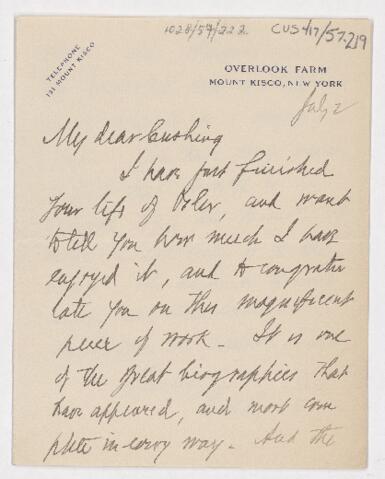 1028/57/222. CUS417/57.219
TELEPHONE
131 MOUNT KISCO
OVERLOOK FARM
MOUNT KISCO, NEW YORK
July 2
My dear Cushing
I have just finished
your life of Osler, and want
to tell you how much I have
enjoyed it, and to congratu
late you on this magnificent
piece of work - It is one
of the great biographies that
have appeared, and most com
plete in every way - And the